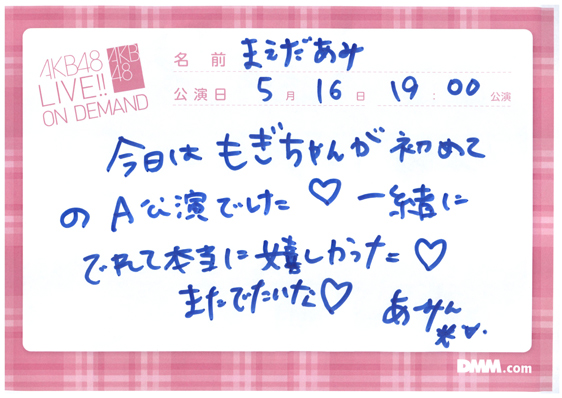 AKB48
LIVE!!
ON DEMAND
AKB
48
名 前 まえだあみ
公演日 5 月 16 日 19 : 00 公演
今日は もぎちゃんが 初めて
の A公演でした ♡ 一緒に
でれて本当に嬉しかった♡
またでたいな♡
あーみん
DMM.com